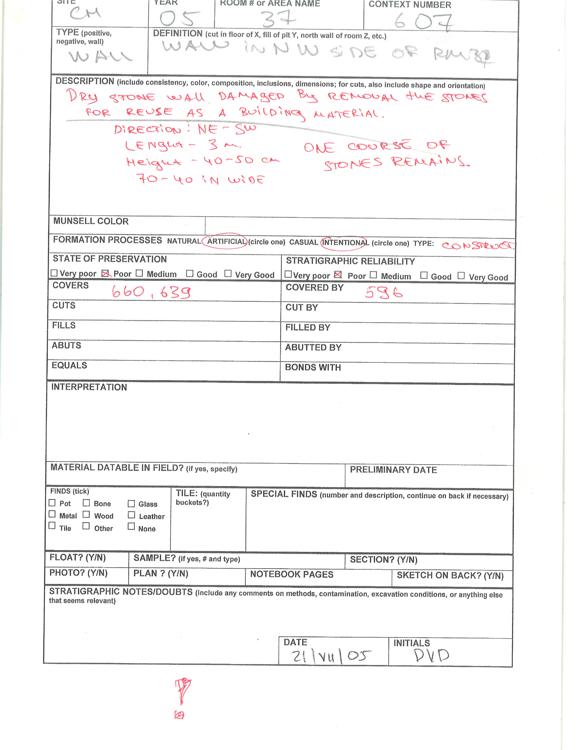 SITE YEAR ROOM # or AREA NAME CONTEXT NUMBER
CM 05 37 607
TYPE (positive, negative, wall) DEFINITION (cut in floor of X, fill of pit Y, north wall of room Z, etc.)
WALL WALL IN NW SIDE OF RM 37
DESCRIPTION (include consistency, color, composition, inclusions, dimensions; for cuts, also include shape and orientation)
DRY STONE WALL DAMAGED BY REMOVAL THE STONES
FOR REUSE AS A BUILDING MATERIAL.
DIRECTION: NE-SW
LENGHT - 3 m ONE COURSE OF
HEIGHT - 40-50 cm STONES REMAINS.
70-40 IN WIDE
MUNSELL COLOR
FORMATION PROCESSES NATURAL ARTIFICIAL (circle one) CASUAL INTENTIONAL (circle one) TYPE: CONSTRUCT
STATE OF PRESERVATION STRATIGRAPHIC RELIABILITY
☐ Very poor ☒ Poor ☐ Medium ☐ Good ☐ Very Good ☐ Very poor ☒ Poor ☐ Medium ☐ Good ☐ Very Good
COVERS 660, 639 COVERED BY 596
CUTS CUT BY
FILLS FILLED BY
ABUTS ABUTTED BY
EQUALS BONDS WITH
INTERPRETATION
MATERIAL DATABLE IN FIELD? (if yes, specify) PRELIMINARY DATE
FINDS (tick) TILE: (quantity buckets?) SPECIAL FINDS (number and description, continue on back if necessary)
☐ Pot ☐ Bone ☐ Glass
☐ Metal ☐ Wood ☐ Leather
☐ Tile ☐ Other ☐ None
FLOAT? (Y/N) SAMPLE? (if yes, # and type) SECTION? (Y/N)
PHOTO? (Y/N) PLAN ? (Y/N) NOTEBOOK PAGES SKETCH ON BACK? (Y/N)
STRATIGRAPHIC NOTES/DOUBTS (include any comments on methods, contamination, excavation conditions, or anything else
that seems relevant)
DATE INITIALS
21/VII/05 DVD